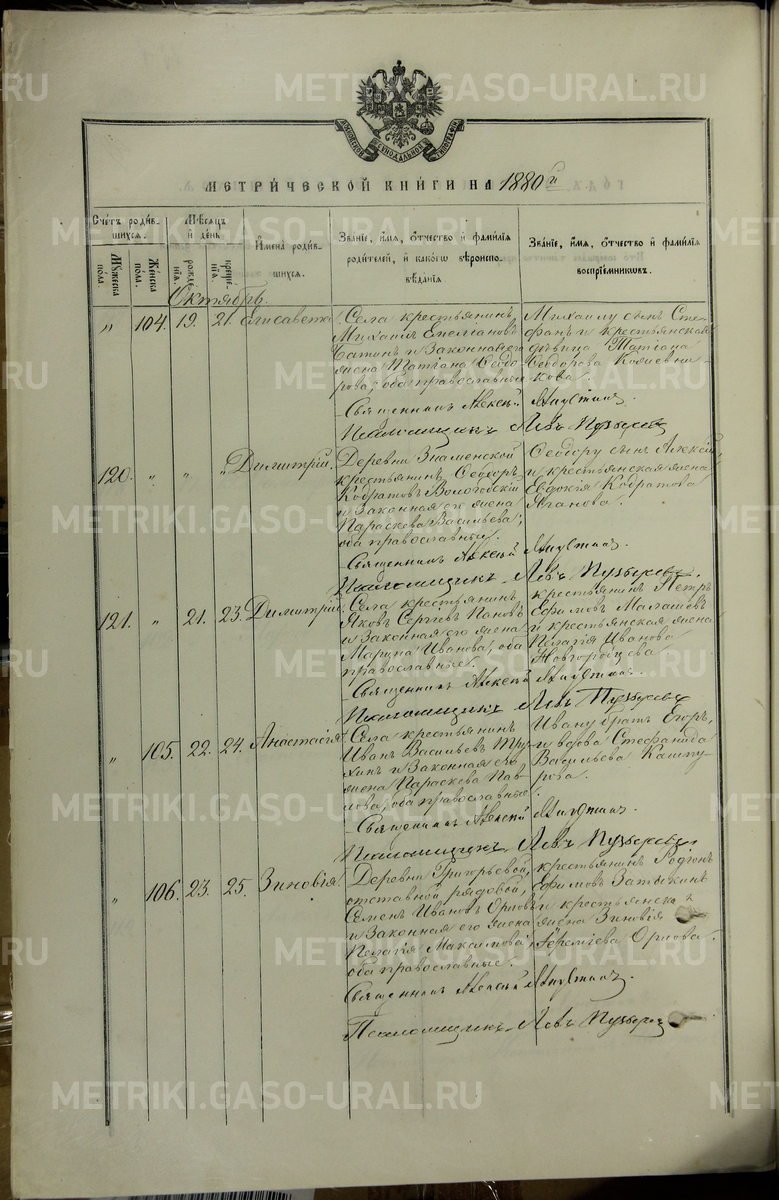 METRIKI.GASO-URAL.RU
МОСКОВСКОЙ СѴНОДАЛЬНОЙ ТИПОГРАФІИ
МЕТРИЧЕСКОЙ КНИГИ НА 1880й
Счетъ родив-
шихся.
Мужеска пола.
Женска пола.
Мѣсяцъ
и день
рожде-
нія.
креще-
нія.
Имена родив-
шихся.
Званіе, имя, отчество и фамилія
родителей, и какого вѣроиспо-
вѣданія
Званіе, имя, отчество и фамилія
воспріемниковъ.
Октябрь.
" 104. 19. 21. Елисавета.
Села крестьянинъ
Михаилъ Емеліановъ
и законная его
жена Татіана Ѳедо-
рова, оба православные
Михаилу сынъ Сте-
фанъ и крестьянская
дѣвица Татіана
Ѳеодорова
Священникъ Алексій
Псаломщикъ Левъ Пузыревъ
120. " " " Димитрій.
Деревни Знаменской
крестьянинъ Ѳеодоръ
Кодратовъ Вологодскій
и законная его жена
Параскева Васильева,
оба православные.
Ѳеодору сынъ Алексій
и крестьянская жена
Евдокія Кодратова
Священникъ Алексій
Псаломщикъ Левъ Пузыревъ
121. " 21. 23. Димитрій.
Села крестьянинъ
Яковъ Сергіевъ Пановъ
и законная его жена
Марина Иванова, оба
православные.
крестьянинъ Петръ
Ефимовъ Малашевъ
и крестьянская жена
Пелагія Иванова
Новгородцева
Священникъ Алексій
Псаломщикъ Левъ Пузыревъ
" 105. 22. 24. Анастасія
Села крестьянинъ
Иванъ Васильевъ Тру-
хинъ и законная его
жена Параскева Пав-
лова, оба православные.
Ивану братъ Егоръ,
и вдова Стефанида
Васильева Кашпу-
рова.
Священникъ Алексій
Псаломщикъ Левъ Пузыревъ
" 106. 23. 25. Зиновія.
Деревни Григорьевой,
отставной рядовой,
Семенъ Ивановъ Орловъ
и законная его жена
Пелагія Максимова,
оба православные.
крестьянинъ Родіонъ
Ефимовъ Затыкинъ
и крестьянская
жена Зиновія
Іереміева Орлова.
Священникъ Алексій
Псаломщикъ Левъ Пузыревъ